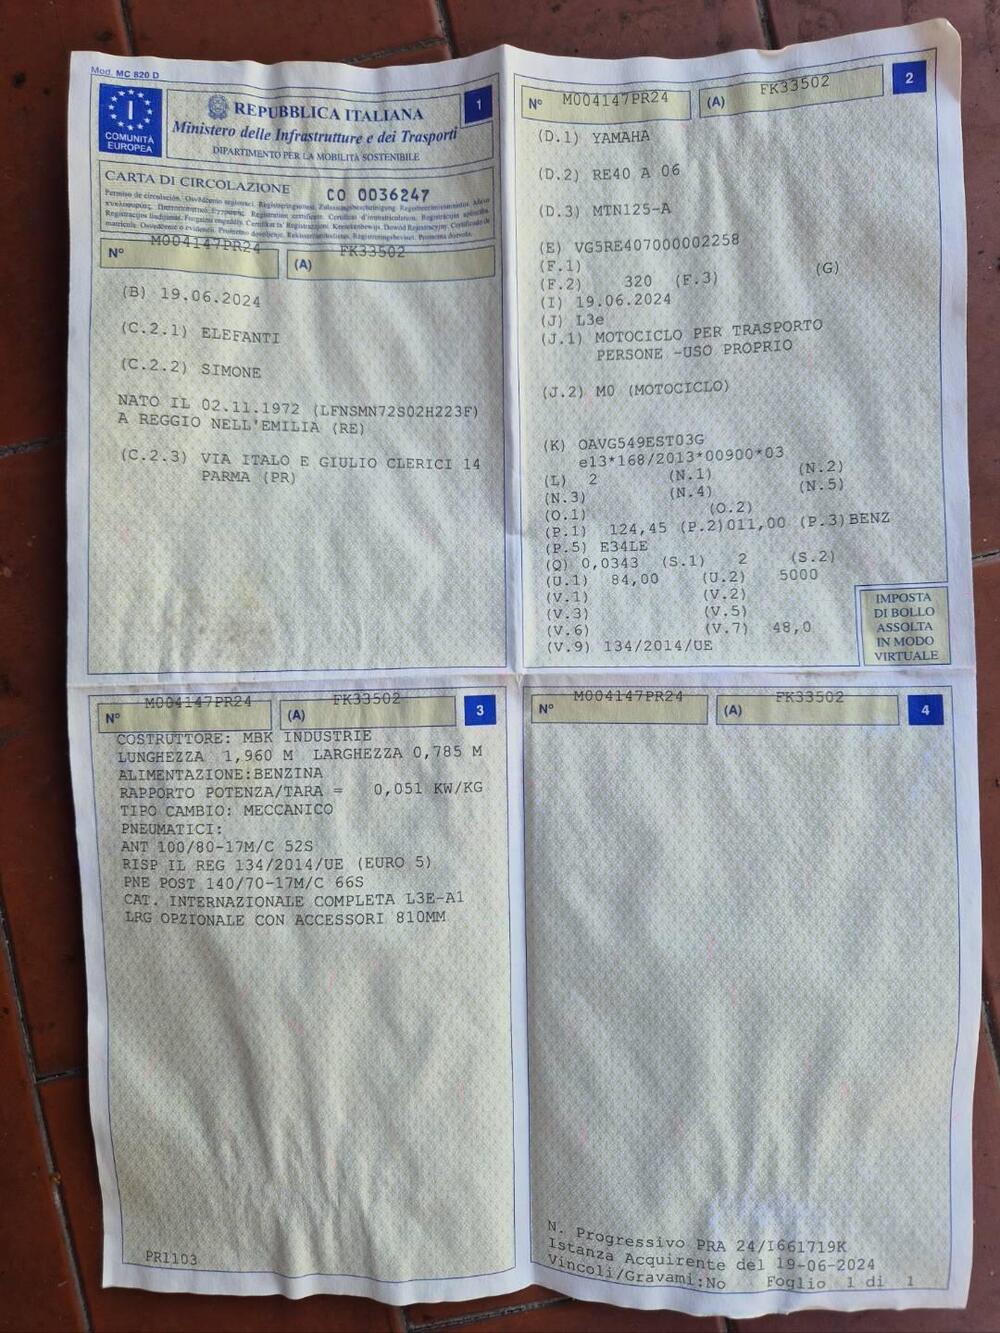 Mod. MC 820 D
I
COMUNITÀ
EUROPEA
REPUBBLICA ITALIANA
Ministero delle Infrastrutture e dei Trasporti
DIPARTIMENTO PER LA MOBILITÀ SOSTENIBILE
1
CARTA DI CIRCOLAZIONE CO 0036247
N° M004147PR24 (A) FK33502
(B) 19.06.2024
(C.2.1) ELEFANTI
(C.2.2) SIMONE
NATO IL 02.11.1972 (LFNSMN72S02H223F)
A REGGIO NELL'EMILIA (RE)
(C.2.3) VIA ITALO E GIULIO CLERICI 14
PARMA (PR)
N° M004147PR24 (A) FK33502 2
(D.1) YAMAHA
(D.2) RE40 A 06
(D.3) MTN125-A
(E) VG5RE407000002258
(F.1) (G)
(F.2) 320 (F.3)
(I) 19.06.2024
(J) L3e
(J.1) MOTOCICLO PER TRASPORTO
PERSONE -USO PROPRIO
(J.2) M0 (MOTOCICLO)
(K) OAVG549EST03G
e13*168/2013*00900*03
(L) 2 (N.1) (N.2)
(N.3) (N.4) (N.5)
(O.1) (O.2)
(P.1) 124,45 (P.2)011,00 (P.3)BENZ
(P.5) E34LE
(Q) 0,0343 (S.1) 2 (S.2)
(U.1) 84,00 (U.2) 5000
(V.1) (V.2)
(V.3) (V.5)
(V.6) (V.7) 48,0
(V.9) 134/2014/UE
IMPOSTA
DI BOLLO
ASSOLTA
IN MODO
VIRTUALE
N° M004147PR24 (A) FK33502 3
COSTRUTTORE: MBK INDUSTRIE
LUNGHEZZA 1,960 M LARGHEZZA 0,785 M
ALIMENTAZIONE:BENZINA
RAPPORTO POTENZA/TARA = 0,051 KW/KG
TIPO CAMBIO: MECCANICO
PNEUMATICI:
ANT 100/80-17M/C 52S
RISP IL REG 134/2014/UE (EURO 5)
PNE POST 140/70-17M/C 66S
CAT. INTERNAZIONALE COMPLETA L3E-A1
LRG OPZIONALE CON ACCESSORI 810MM
PR1103
N° M004147PR24 (A) FK33502 4
N. Progressivo PRA 24/I661719K
Istanza Acquirente del 19-06-2024
Vincoli/Gravami:No Foglio 1 di 1